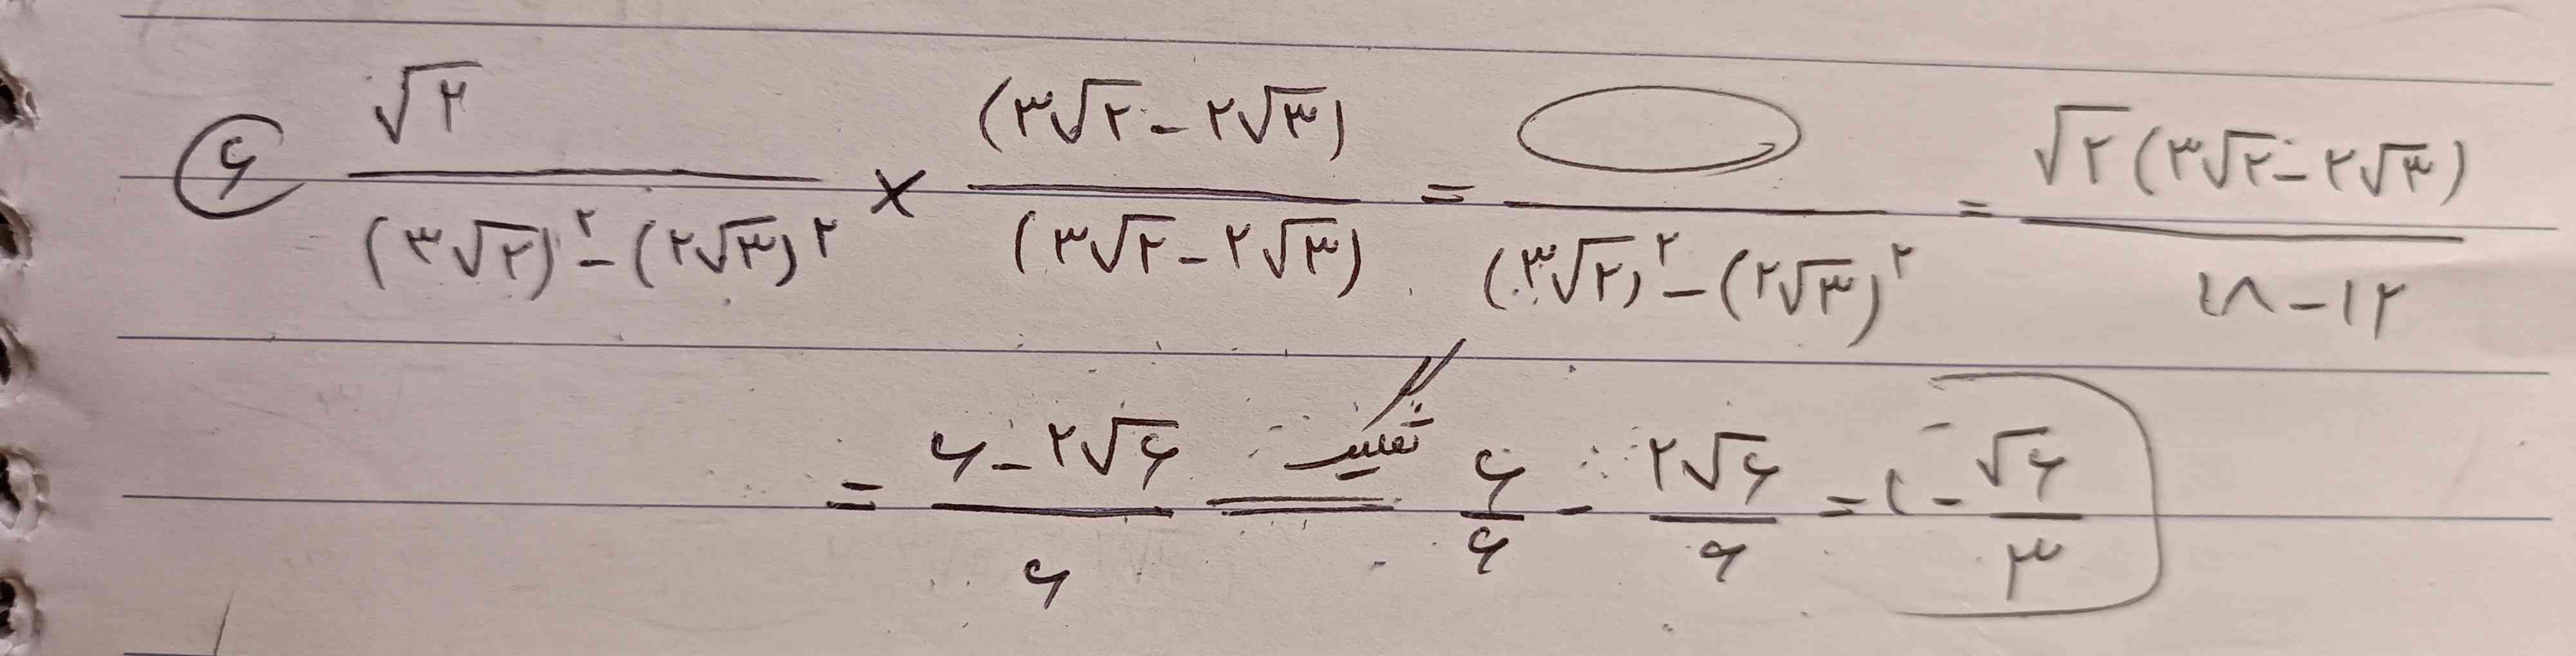 ۶ √۲ / (۳√۲)^۲ - (۲√۳)^۲ × (۳√۲ - ۲√۳) / (۳√۲ - ۲√۳) = / (۳√۲)^۲ - (۲√۳)^۲ = √۲(۳√۲ - ۲√۳) / ۱۸ - ۱۲
= ۶ - ۲√۶ / ۶ تفکیک = ۶/۶ - ۲√۶ / ۶ = ۱ - √۶ / ۳